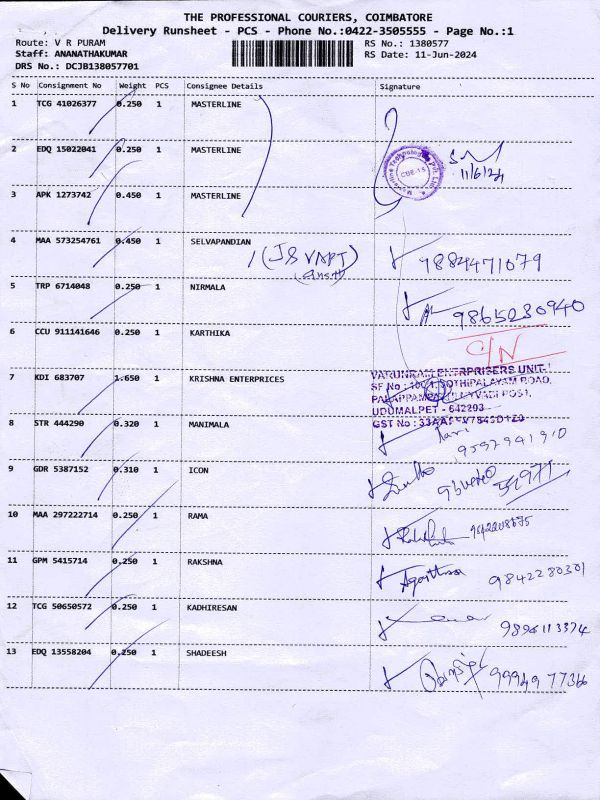 THE PROFESSIONAL COURIERS, COIMBATORE
Delivery Runsheet - PCS - Phone No.:0422-3505555 - Page No.:1
Route: V R PURAM RS No.: 1380577
Staff: ANANATHAKUMAR RS Date: 11-Jun-2024
DRS No.: DCJB138057701
S No Consignment No Weight PCS Consignee Details Signature
1 TCG 41026377 0.250 1 MASTERLINE
2 EDQ 15022041 0.250 1 MASTERLINE
11/6/24
3 APK 1273742 0.450 1 MASTERLINE
4 MAA 573254761 0.450 1 SELVAPANDIAN
9884471079
5 TRP 6714048 0.250 1 NIRMALA
9865230940
6 CCU 911141646 0.250 1 KARTHIKA
C/N
7 KDI 683707 1.650 1 KRISHNA ENTERPRICES
VARUNRAM ENTRPRISERS UNIT
UDUMALPET - 642203
8 STR 444290 0.320 1 MANIMALA
9597941910
9 GDR 5387152 0.310 1 ICON
10 MAA 297222714 0.250 1 RAMA
11 GPM 5415714 0.250 1 RAKSHNA
9842280301
12 TCG 50650572 0.250 1 KADHIRESAN
13 EDQ 13558204 0.250 1 SHADEESH
9994977366